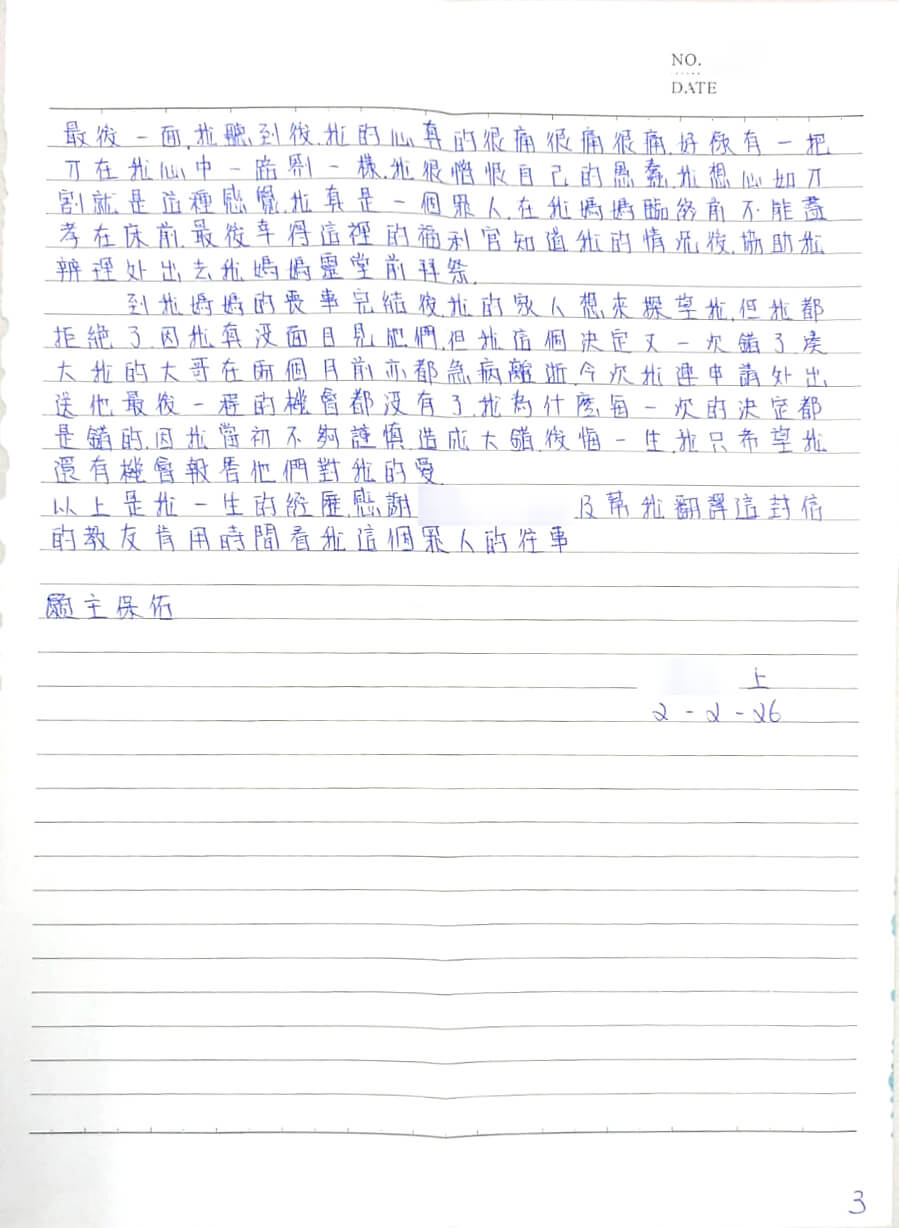 NO.
DATE
最後一面,我聽到後,我的心真的很痛很痛很痛,好像有一把
刀在我心中一路劏一樣,我很憎恨自己的愚蠢,我想心如刀
割就是這種感覺,我真是一個罪人,在我媽媽臨終前不能盡
孝在床前,最後幸得這裡的福利官知道我的情況後,協助我
辨理外出去我媽媽靈堂前拜祭.
到我媽媽的喪事完結後,我的家人想來探望我,但我都
拒絕了,因我真沒面目見他們,但我這個決定又一次錯了,疼
大我的大哥在兩個月前亦都急病離逝,今次我連申請外出
送他最後一程的機會都沒有了,我為什麼每一次的決定都
是錯的,因我當初不夠謹慎,造成大錯,後悔一生,我只希望我
還有機會報答他們對我的愛.
以上是我一生的經歷,感謝 及幫我翻譯這封信
的教友肯用時間看我這個罪人的往事
願主保佑
上
2-2-26
3